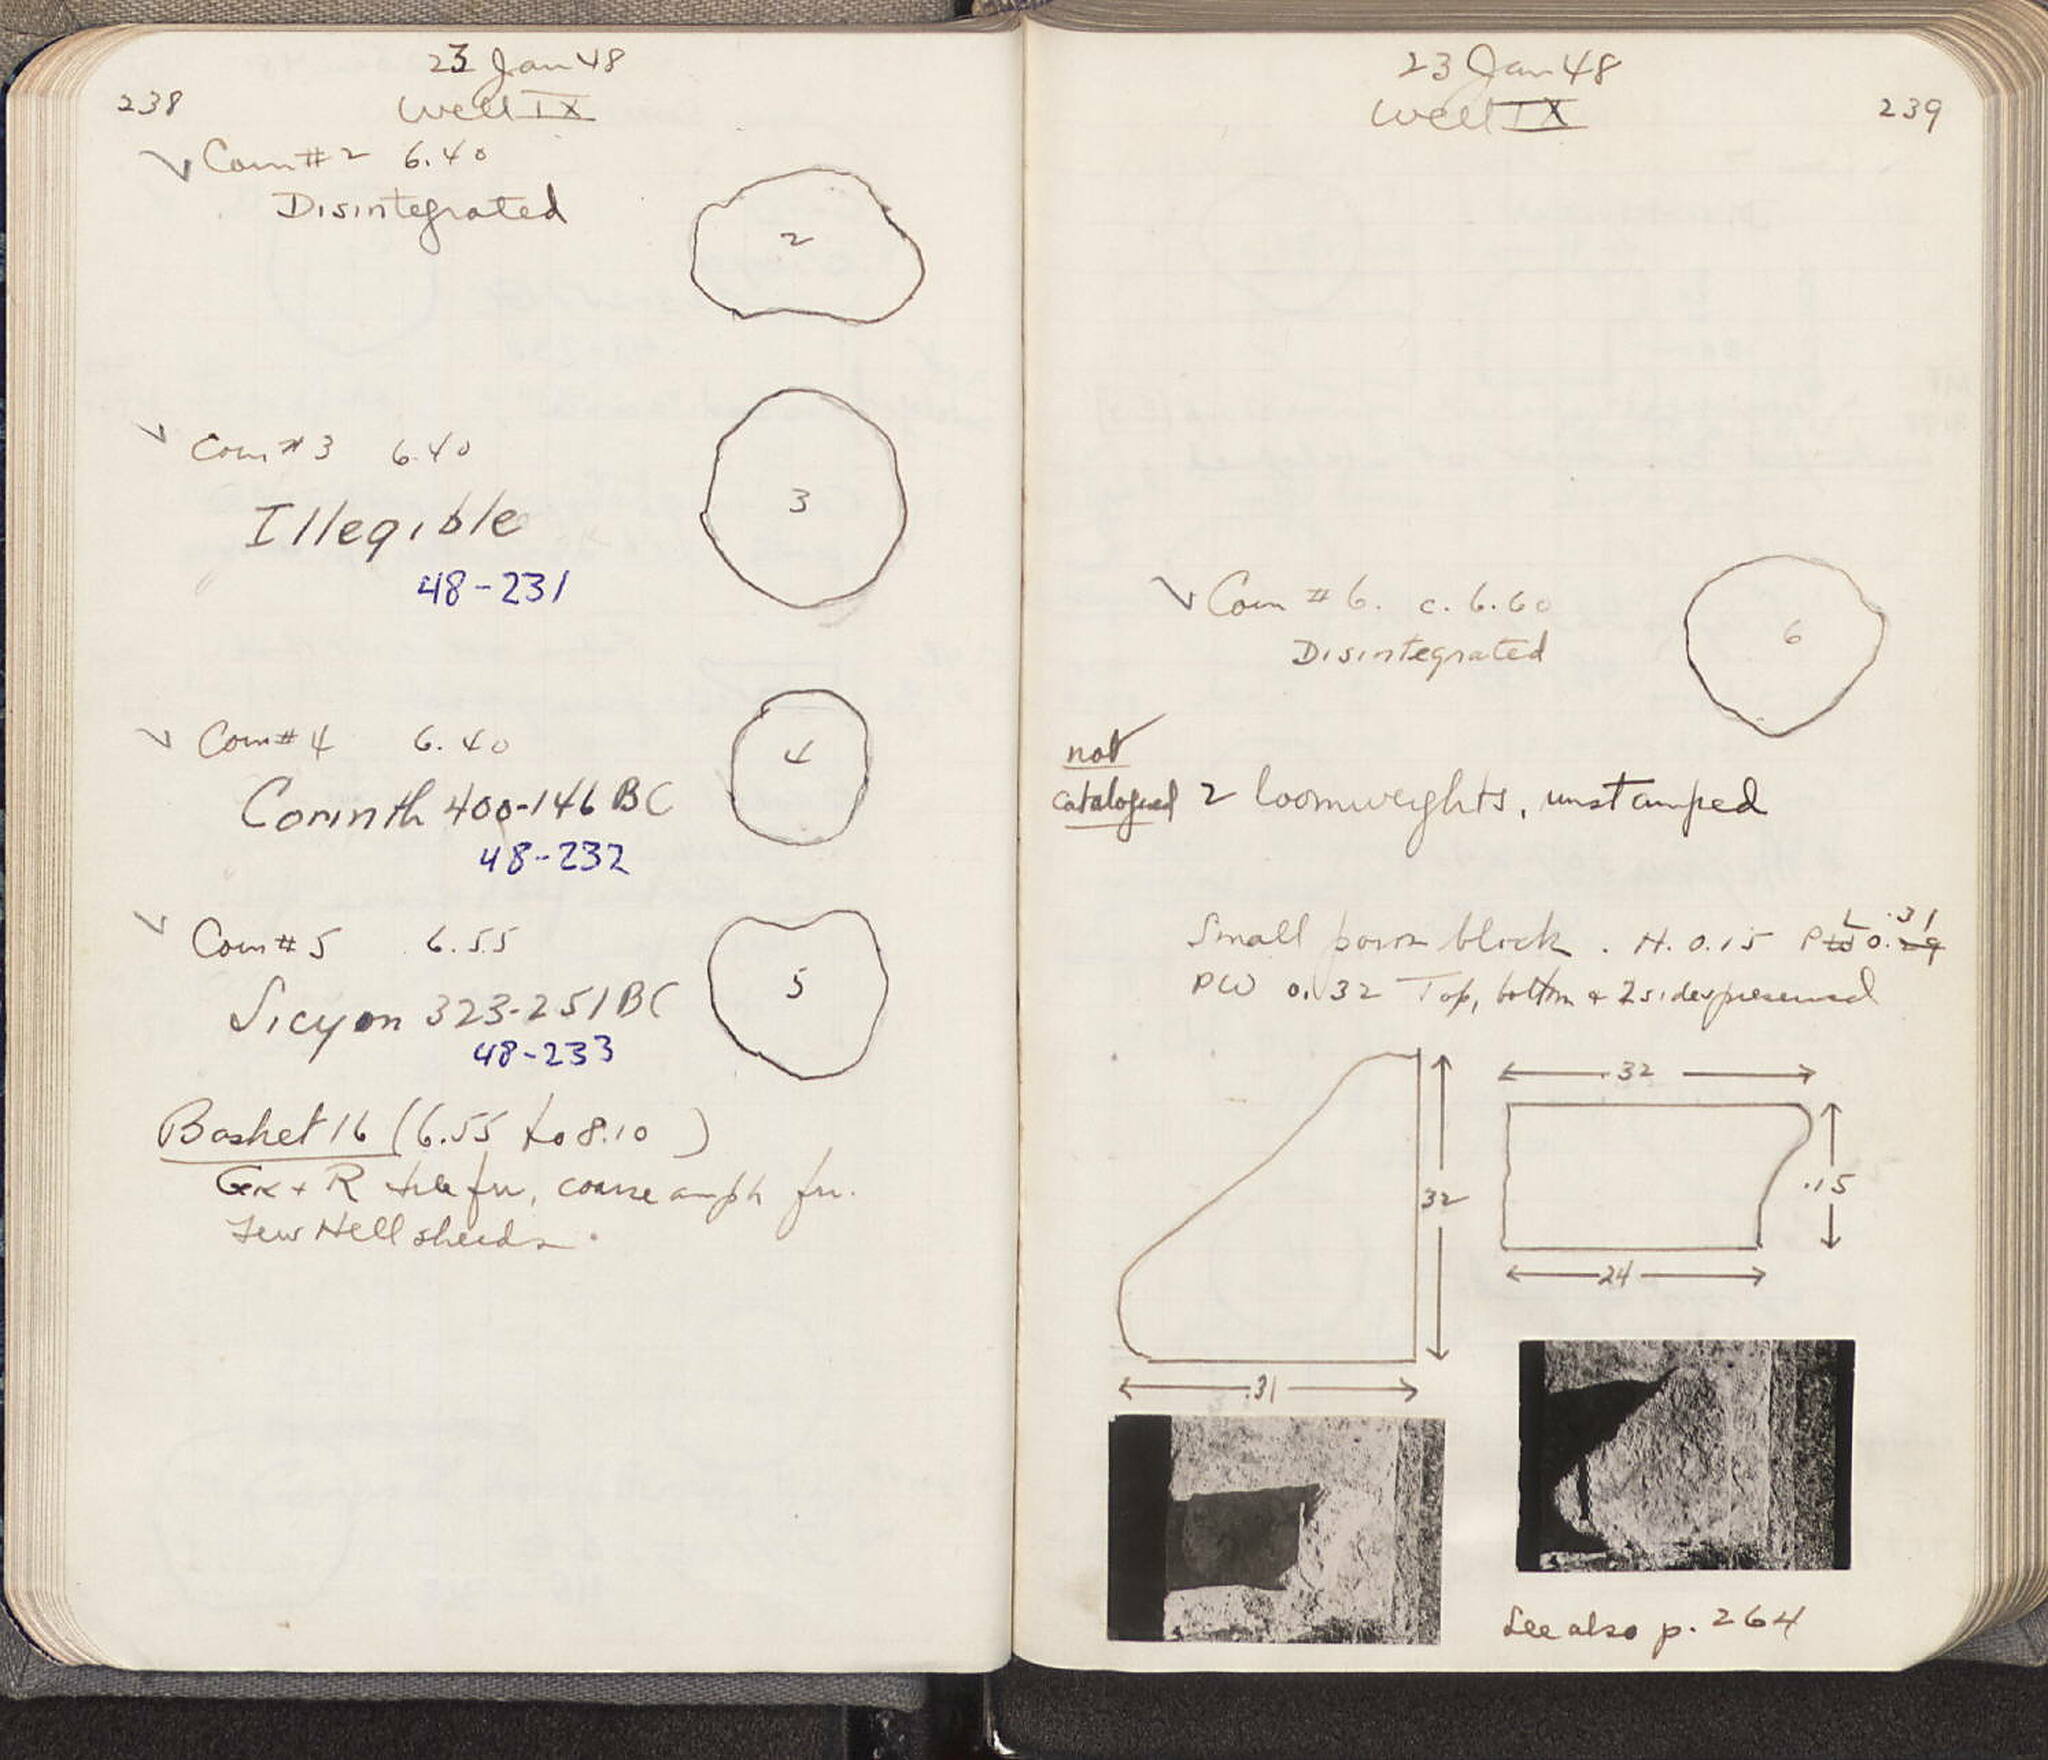 23 Jan 48
238
Well IX
Coin #2 6.40
Disintegrated
2
Coin #3 6.40
Illegible
48-231
3
Coin #4 6.40
Corinth 400-146 BC
48-232
4
Coin #5 6.55
Sicyon 323-251 BC
48-233
5
Basket 16 (6.55 to 8.10)
Gk + R tile fr, coarse amph fr.
Few Hell sherds.
23 Jan 48
239
Well IX
Coin #6. c. 6.60
Disintegrated
6
not
catalogued 2 loomweights, unstamped
Small poros block. H. 0.15 PL 0.31
PW 0.32 Top, bottom + 2 sides preserved
.32
32
.15
24
.31
See also p. 264